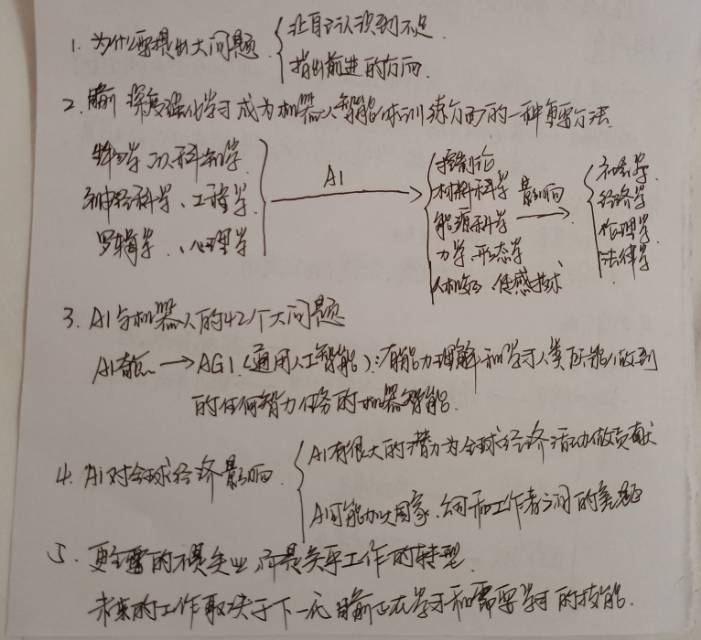 1. 为什么要提出大问题
让自己认识到不足
指出前进的方向.
2. 目前 深度强化学习成为机器人智能体训练方面的一种重要方法.
物理学 认知科学
神经科学、工程学
逻辑学、心理学
AI
控制论
材料科学
能源科学
力学、形态学
人机交互、传感技术
影响
社会学
经济学
伦理学
法律学
3. AI与机器人的42个大问题
AI奇点 → AGI (通用人工智能): 有能力理解和学习人类所能做到
的任何智力任务的机器智能.
4. AI对全球经济影响
AI有很大的潜力为全球经济活动做贡献
AI可能加大国家、公司和工作者之间的差距
5. 更重要的不是失业,而是关乎工作的转型.
未来的工作取决于下一代目前正在学习和需要学习的技能.